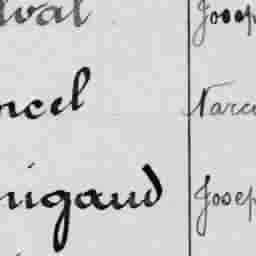 dval Josep
ncel Narci
nigaud Josep